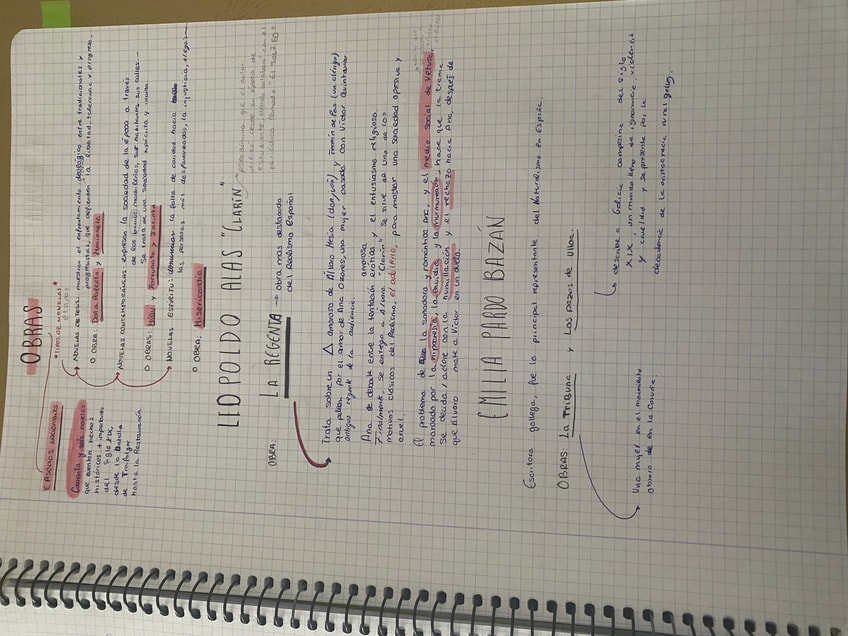 OBRAS
EPISODIOS NACIONALES
Cuarenta y seis novelas
que cuentan hechos
históricos + importantes
del siglo XIX,
desde la Batalla
de Trafalgar
hasta la Restauración
*TIPOS DE NOVELAS*
NOVELAS DE TESIS: muestran el enfrentamiento ideológico entre tradicionales y
progresistas, que defienden la libertad, tolerancia y progreso.
O OBRA: Doña Perfecta y
NOVELAS CONTEMPORÁNEAS: expresan la sociedad de la época a través
de los barrios madrileños, sus
Se trata de una sociedad hipócrita y
O OBRAS: Miau y Fortunata y Jacinta
NOVELAS ESPIRITU: denuncian la falta de caridad hacia
las personas más desfavorecidas, la injusticia,
O OBRA: Misericordia
LEOPOLDO ALAS "CLARÍN"
OBRA: LA REGENTA → obra mas destacada
del Realismo Español
Trata sobre un △ amoroso de Álvaro Mesía (don juan) y Fermín de Pas (un clérigo)
que pelean por el amor de Ana Ozores, una mujer casada con Víctor Quintanar
antiguo regente de la audiencia.
Ana se debate entre la tentación erótica y el entusiasmo religioso.
amorosa
Finalmente, se entrega a Álvaro. "Clarín" se sirve de uno de los
motivos clásicos del Realismo, el adulterio, para mostrar una sociedad opresiva y
cruel.
El problema de la soñadora y romántica Ana, y el medio social de Vetusta,
marcado por la hipocresía, la envidia y la murmuración, hace que la trama
se decida / aclare con la humillación y el rechazo hacia Ana, después de
que Álvaro mate a Víctor en un duelo.
EMILIA PARDO BAZÁN
Escritora gallega, fue la principal representante del Naturalismo en España.
OBRAS: La Tribuna y Los Pazos de Ulloa.
Una mujer en el movimiento
obrero de en la Coruña.
describe a Galicia campesina del siglo
XIX, un mundo lleno de ignorancia, violencia
y crueldad y se presenta por la
decadencia de la aristocracia rural gallega.